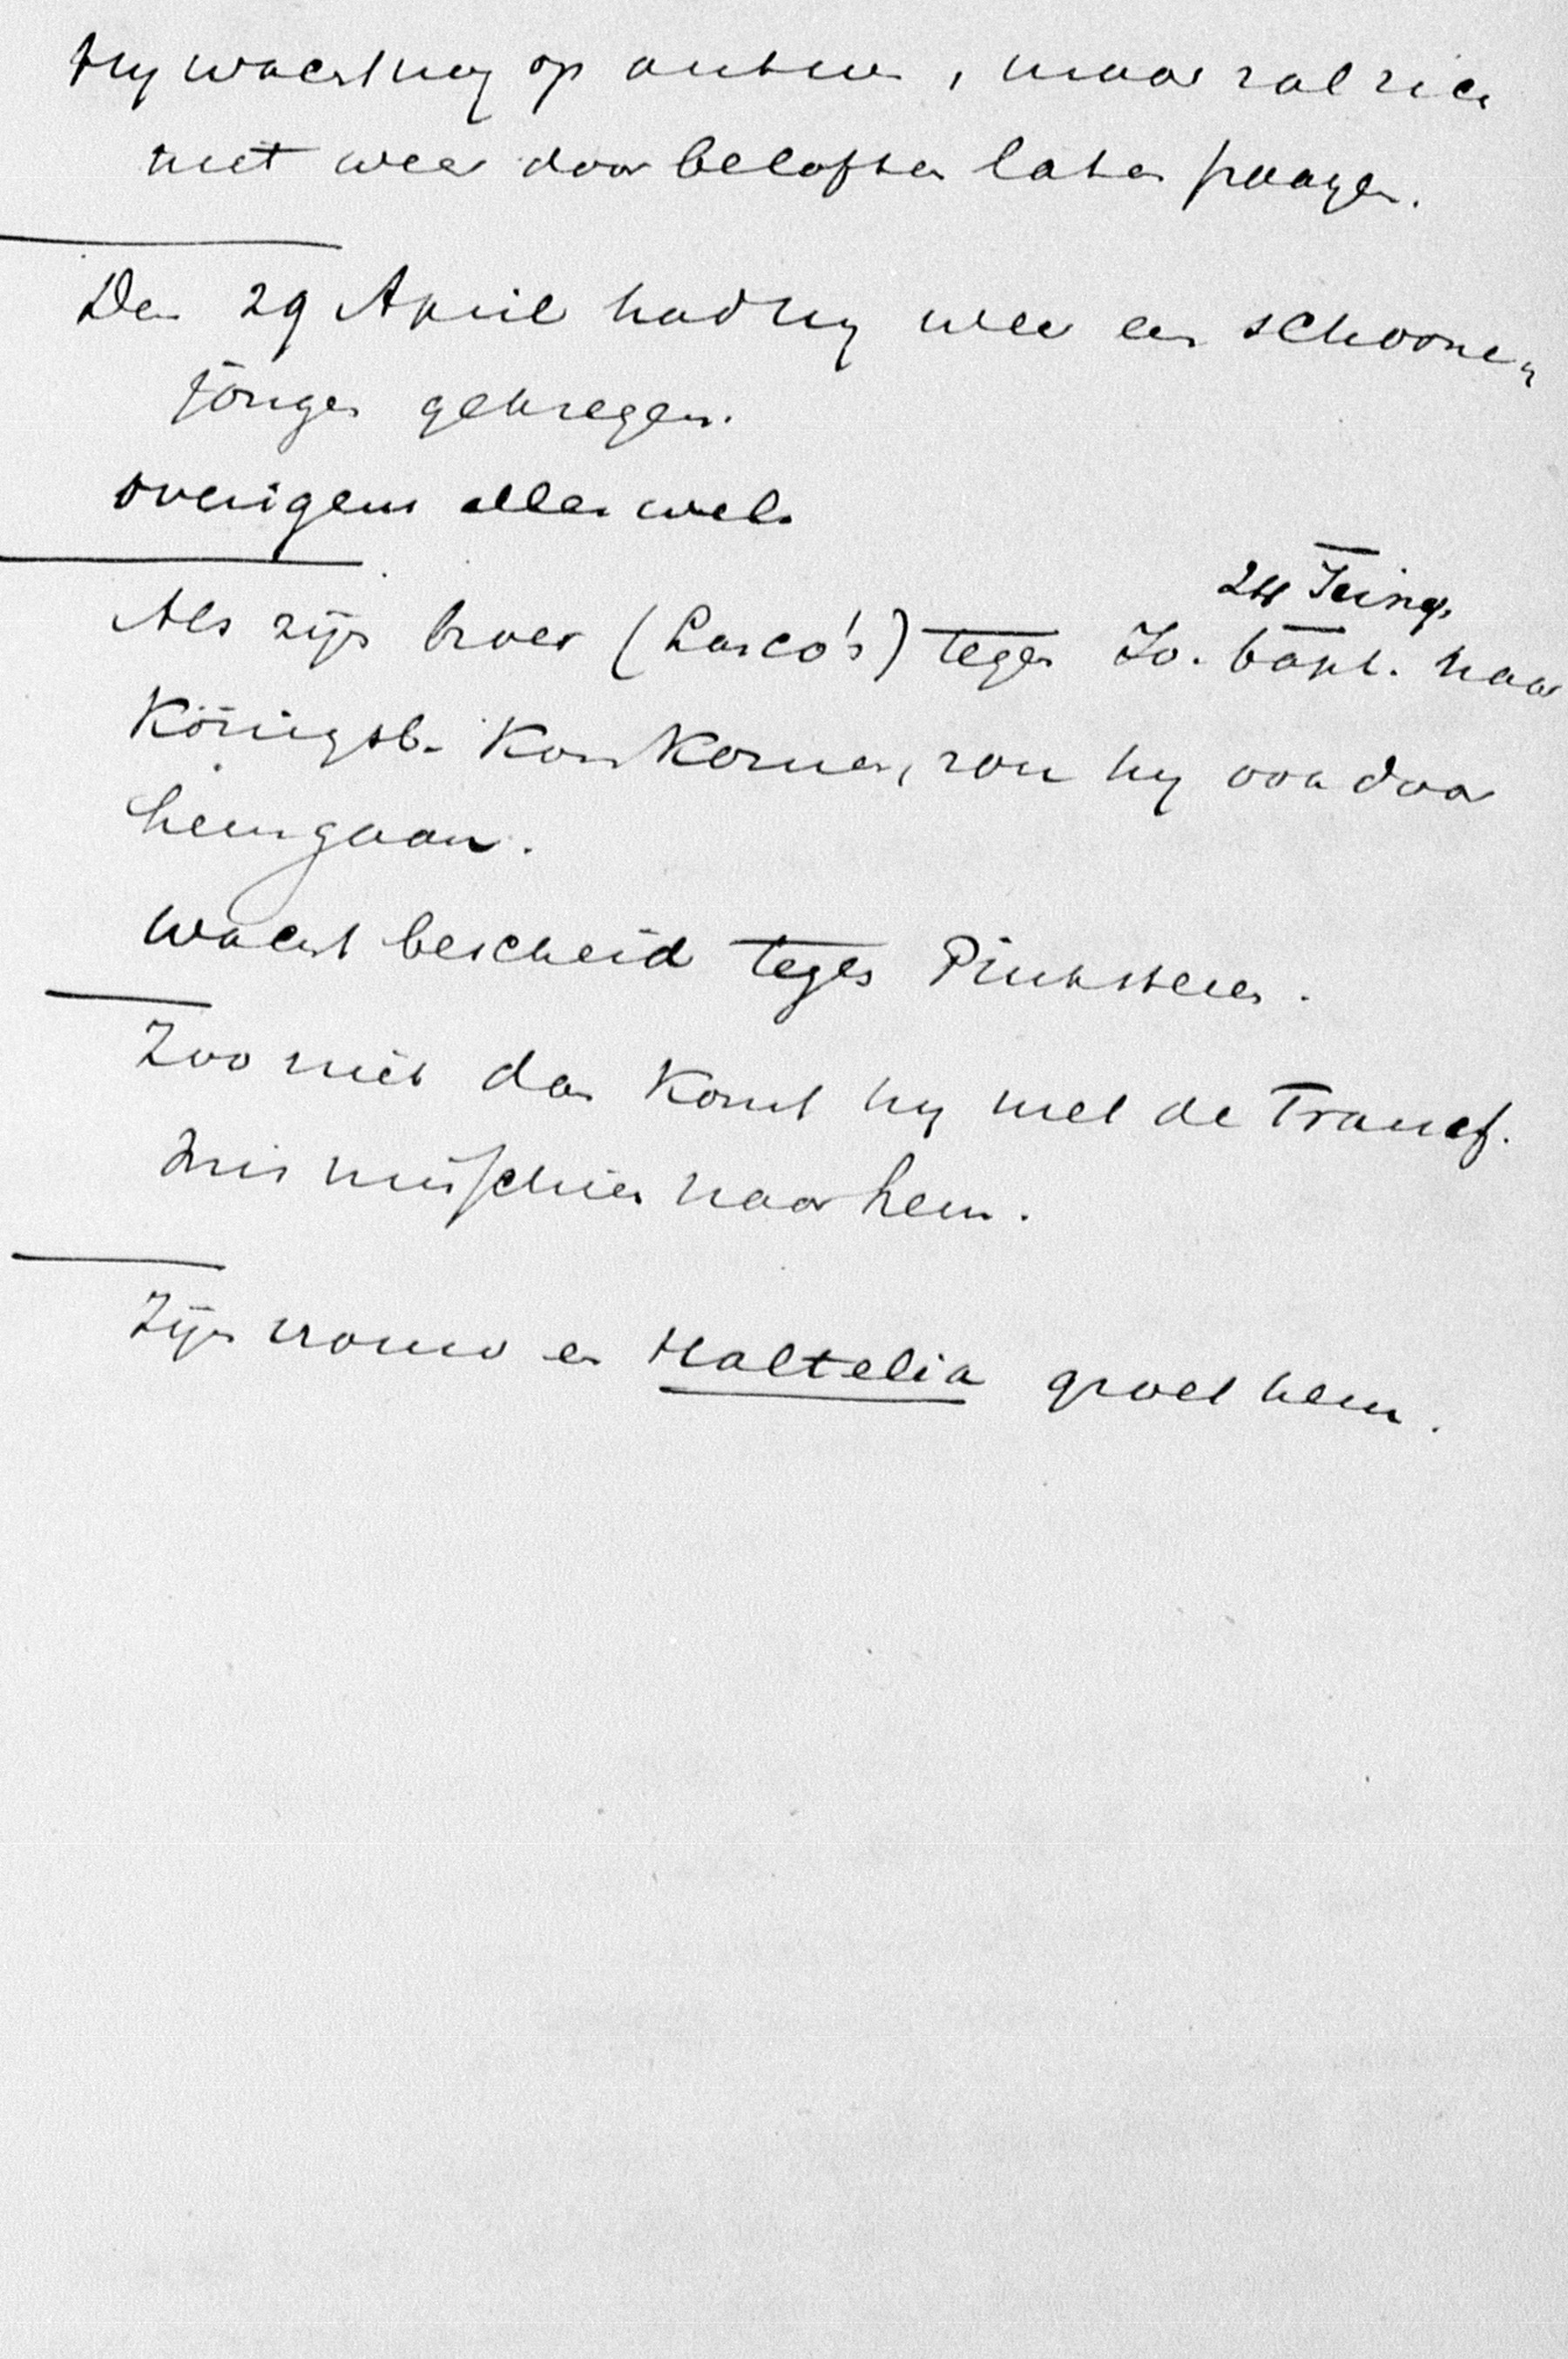 Hy wacht nog op antw , maar zal zich
niet weer door beloften laten paayen.
Den 29 April had hy weer een schoonen
jongen gekregen.
overigens alles wel.
24 Juny
Als zijn broer (Lasco's) tegen Jo. bapt. naar
Königsb. Kon Komen, zou hy ook daar
heen gaan.
wacht bescheid tegen Pinksteren.
Zoo niet dan Komt hy met de Francf.
mis misschien naar hem.
Zijn vrouw en Haltelia groet hem.